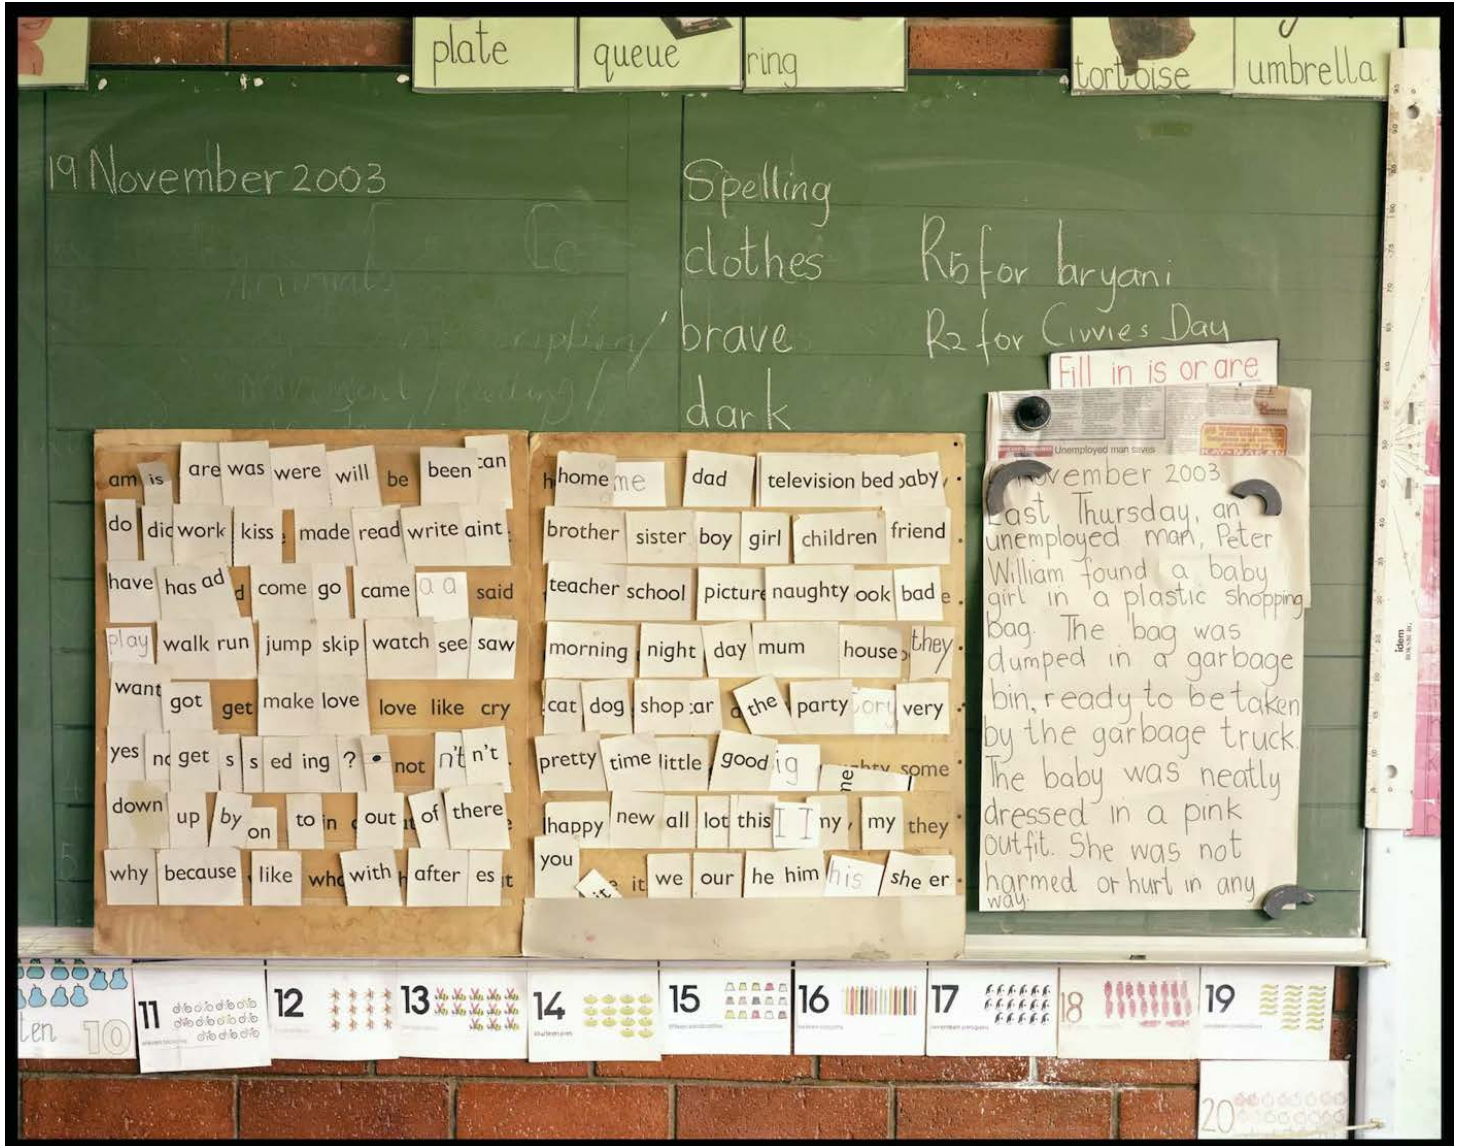 plate
queue
ring
tortoise
umbrella
19 November 2003
Spelling
clothes
brave
dark
R5 for bryani
R2 for Civvies Day
Fill in is or are
am is are was were will be been can
do did work kiss made read write aint
have has ad d come go came a a said
play walk run jump skip watch see saw
want got get make love love like cry
yes no get s s ed ing ? . not n't n't
down up by on to in out of there
why because like who with after es it
home me dad television bed baby
brother sister boy girl children friend
teacher school picture naughty ook bad
morning night day mum house they
cat dog shop car the party ory very
pretty time little good ig me ghty some
happy new all lot this I I my my they
you it it we our he him his she er
Unemployed man saves
November 2003
Last Thursday, an
unemployed man, Peter
William found a baby
girl in a plastic shopping
bag. The bag was
dumped in a garbage
bin, ready to be taken
by the garbage truck.
The baby was neatly
dressed in a pink
outfit. She was not
harmed or hurt in any
way.
idem
ten 10
11
12
13
14
15
16
17
18
19
20